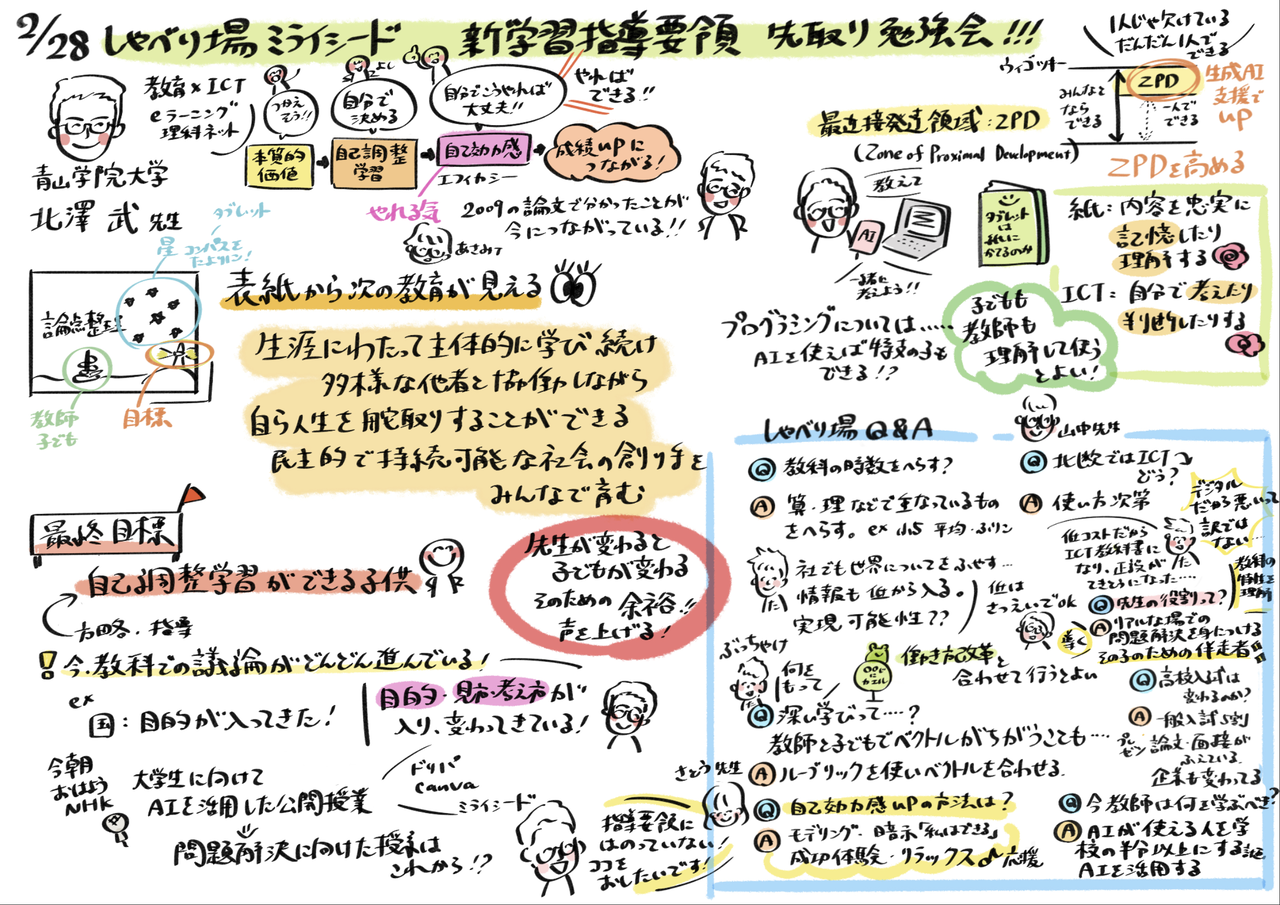 2/28 しゃべり場 ミライシード 新学習指導要領 先取り勉強会!!!
教育×ICT
eラーニング
理科ネット
青山学院大学
北澤 武 先生
つかえそう!!
よし
自分で決める
自分でこうやれば大丈夫!!
やればできる!!
本質的価値
自己調整学習
自己効力感
成績UPにつながる!
エフィカシー
やれる気
2009の論文で分かったことが
今につながっている!!
タブレット
星 コンパスを
たよりに!
論点整理
教師
子ども
目標
表紙から次の教育が見える
生涯にわたって主体的に学び続け
多様な他者と協働しながら
自ら人生を舵取りすることができる
民主的で持続可能な社会の創り手を
みんなで育む
最終目標
自己調整学習ができる子供
方略・指導
先生が変わると
子どもが変わる
そのための 余裕!!
声を上げる!
! 今、教科での議論がどんどん進んでいる!
ex
国:目的が入ってきた!
目的・見方・考え方が
入り、変わってきている!
今朝
おはよう
NHK
大学生に向けて
AIを活用した公開授業
ドリパ
Canva
ミライシード
問題解決に向けた授業は
これから!?
指導要領に
はのっていない!
ココを
おしたいです!
1人じゃ欠けている
だんだん1人で
できる
ヴィゴツキー
ZPD
みんなとならできる
一人でできる
生成AI
支援で
UP
ZPDを高める
最近接発達領域:ZPD
(Zone of Proximal Development)
教えて
AI
一緒に
考えよう!!
タブレット
は
紙に
かてるのか
紙:内容を忠実に
記憶したり
理解する
ICT:自分で考えたり
判断したりする
プログラミングについては……
AIを使えば特支の子も
できる!?
子どもも
教師も
理解して使う
とよい!
しゃべり場Q&A
山中先生
Q 教科の時数をへらす?
A 算・理などで重なっているもの
をへらす。ex 小5 平均・ふりこ
社でも世界についてをふやす…
情報も低から入る。
実現可能性??
低は
さつえいでOK
ぶっちゃけ
何を
もって
働き方改革と
合わせて行うとよい
Q 深い学びって…?
教師と子どもでベクトルがちがうことも…
A ルーブリックを使いベクトルを合わせる
さとう先生
Q 自己効力感UPの方法は?
A モデリング・暗示「私はできる」
成功体験・リラックス 応援
Q 北欧ではICT
どう?
A 使い方次第
デジタル
だから悪いって
訳では
ない…
低コストだから
ICT教科書に
なり、正誤が
できそうになった…
教科の
特性を
理解
Q 先生の役割って?
A リアルな場での
問題解決を身につける
その子のための伴走者!!
導く
Q 高校入試は
変わるのか?
A 一般入試5割
プレゼン 論文・面接が
ふえている
企業も変わってる
Q 今教師は何を学ぶべき?
A AIが使える人を学
校の半分以上にする
AIを活用する